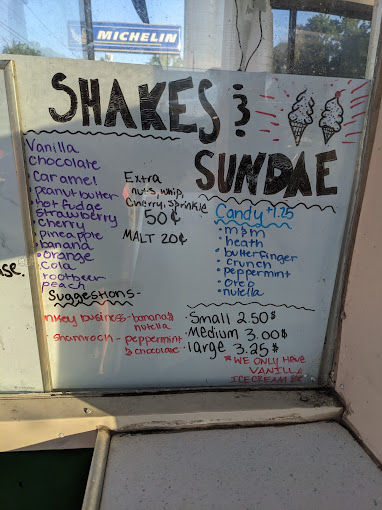 MICHELIN
SHAKES &
SUNDAE
Vanilla
chocolate
caramel
peanut butter
hot fudge
strawberry
cherry
pineapple
banana
orange
cola
rootbeer
peach
Extra
nuts, whip,
Cherry, sprinkle
50¢
MALT 20¢
Candy +1.25
m&m
heath
butterfinger
crunch
peppermint
oreo
nutella
Suggestions-
nkey business - banana &
nutella
shamrock - peppermint
& chocolate
Small 2.50$
Medium 3.00$
large 3.25$
*WE ONLY HAVE
VANILLA
ICECREAM